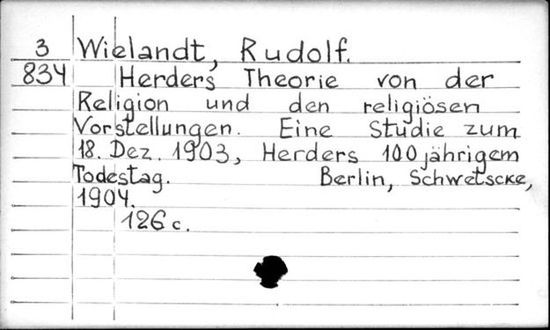 3 Wielandt, Rudolf.
834 Herders Theorie von der
Religion und den religiösen
Vorstellungen. Eine Studie zum
18. Dez. 1903, Herders 100jährigem
Todestag. Berlin, Schwetscke,
1904.
126 c.